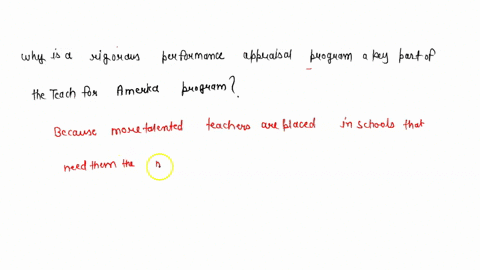 why is a rigorous performance appraisal program a key part of
the Teach for America program?
Because more talented teachers are placed in schools that
need them the